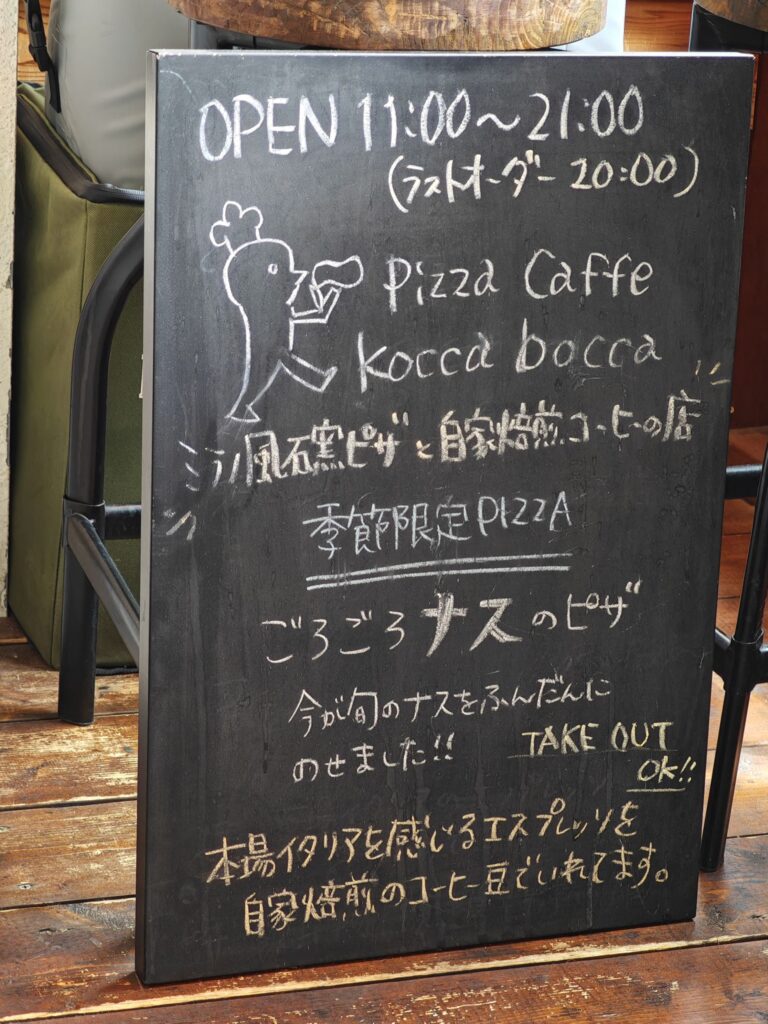 OPEN 11:00～21:00
(ラストオーダー 20:00)
Pizza Caffe
kocca bocca
ミラノ風石窯ピザと自家焙煎コーヒーの店
季節限定PIZZA
ごろごろナスのピザ
今が旬のナスをふんだんに
のせました!!
TAKE OUT
OK!!
本場イタリアを感じるエスプレッソを
自家焙煎のコーヒー豆でいれてます。